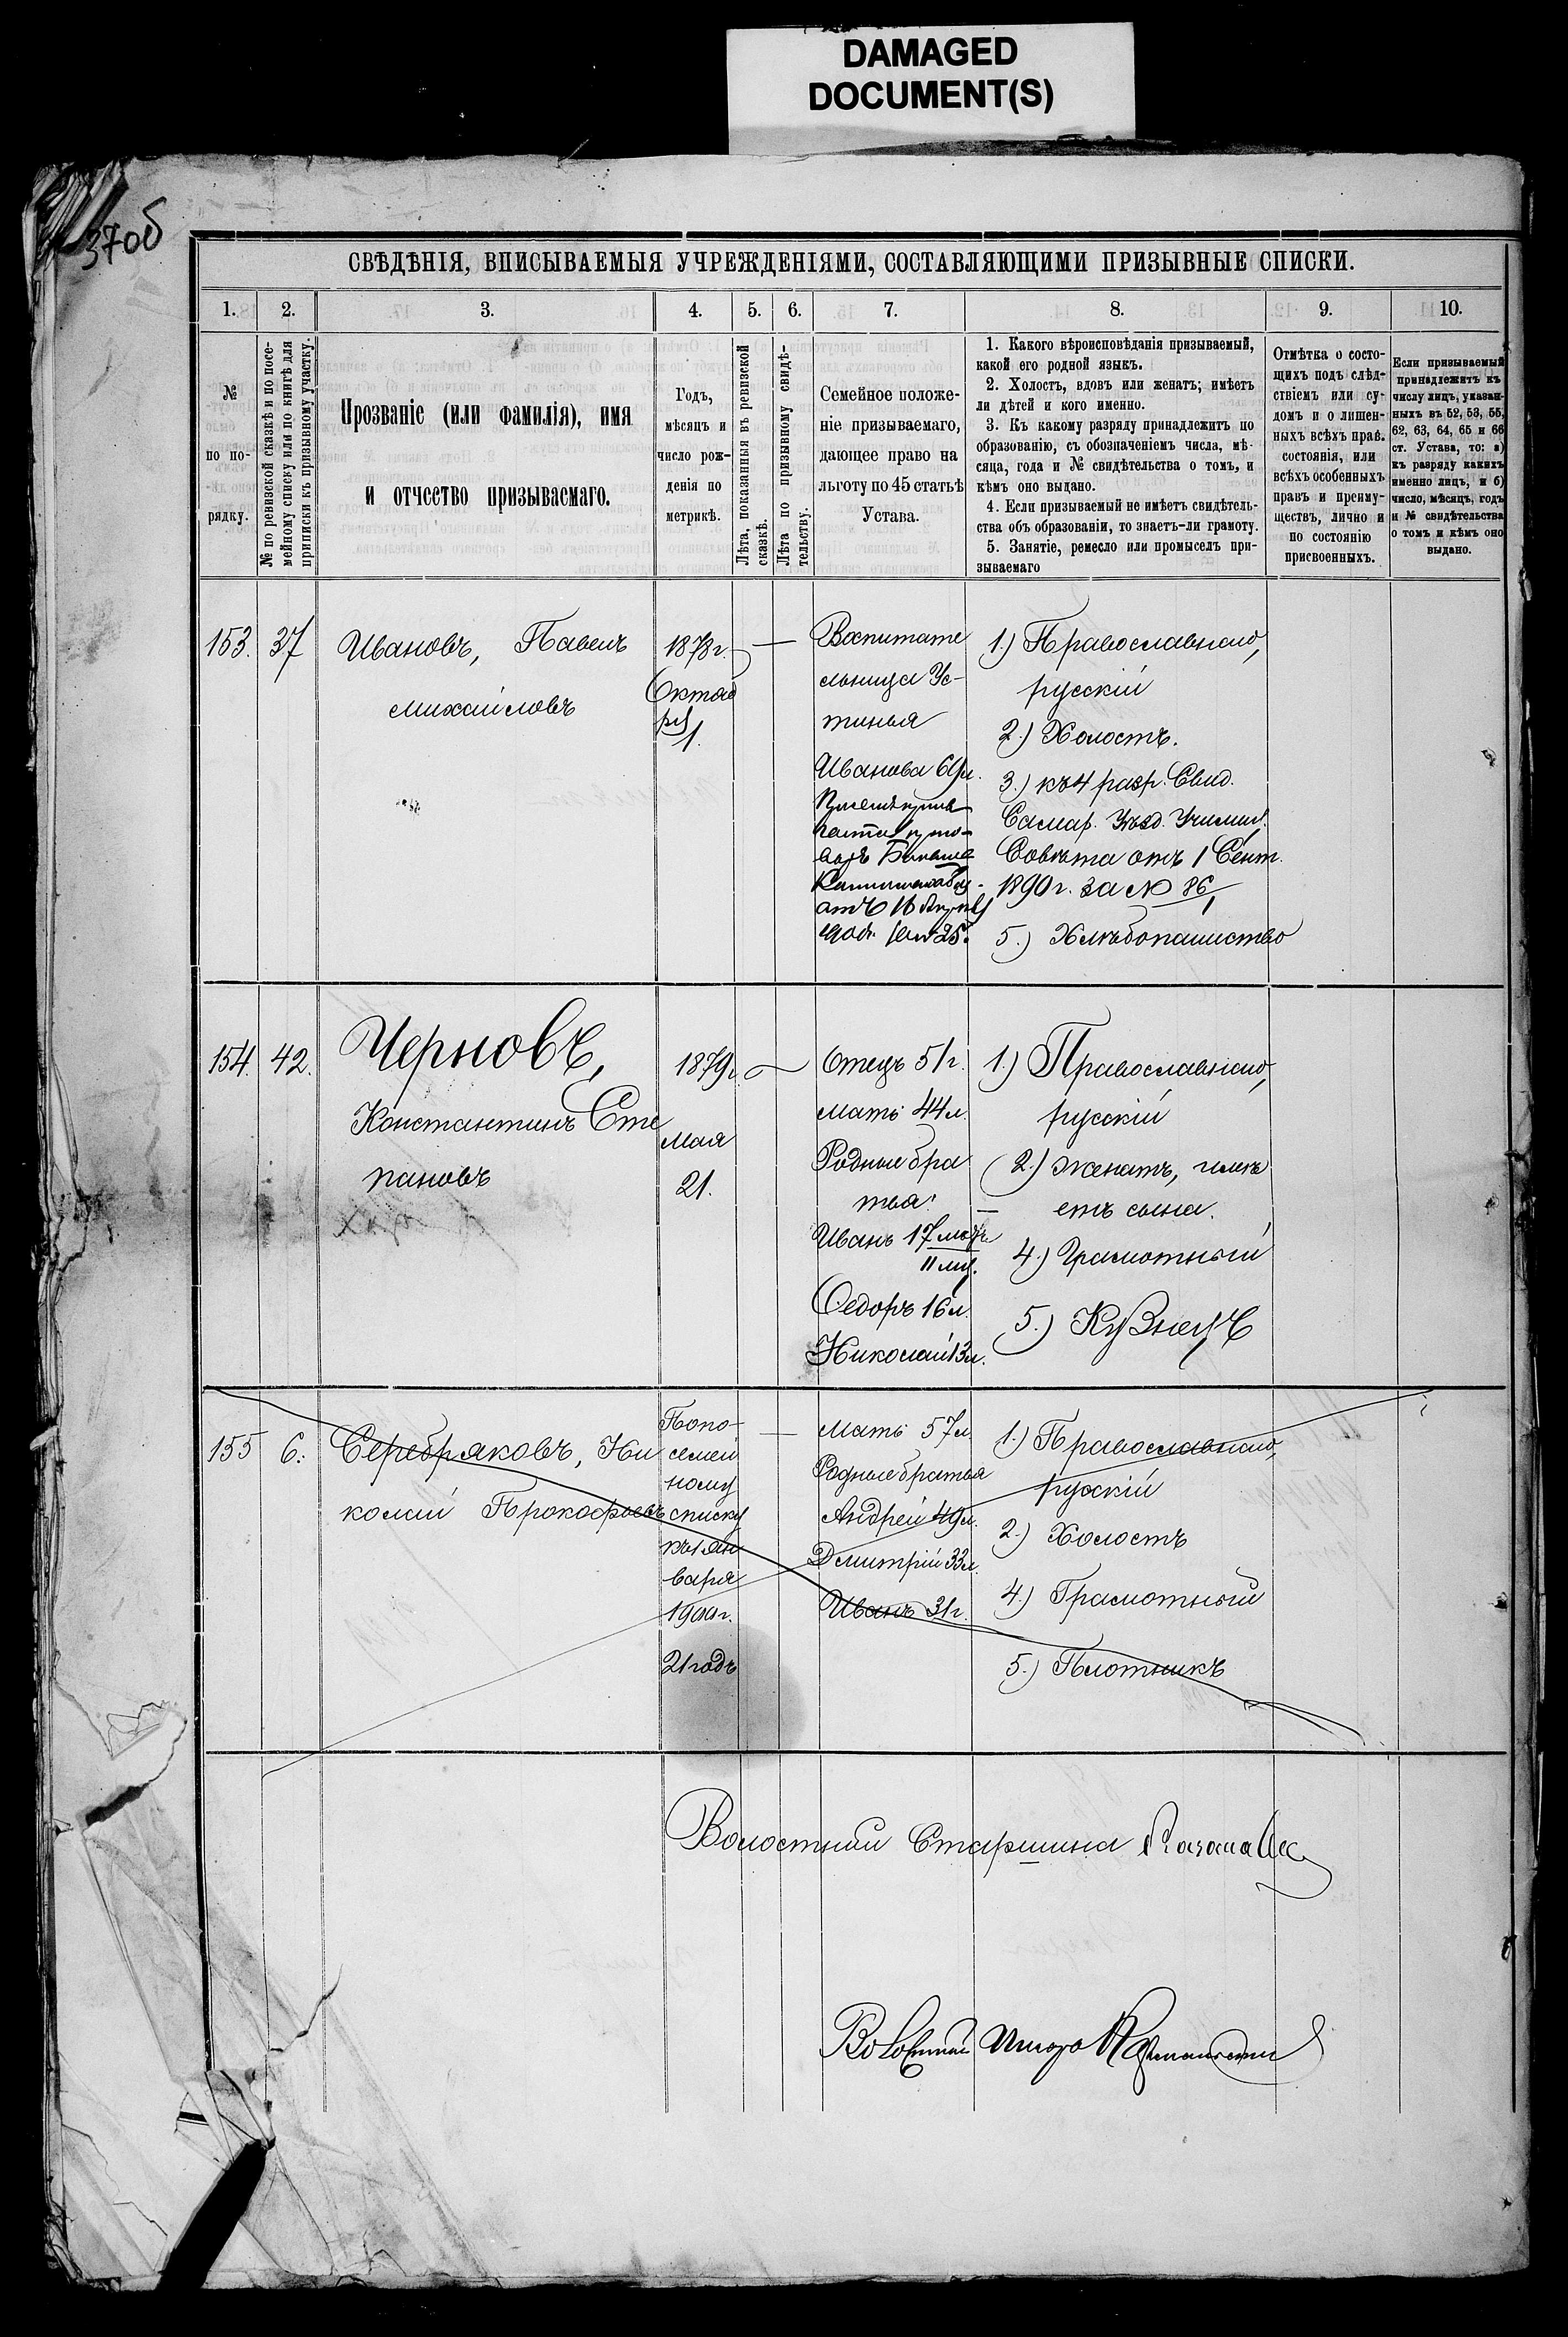 DAMAGED
DOCUMENT(S)
370б
СВѢДѢНІЯ, ВПИСЫВАЕМЫЯ УЧРЕЖДЕНІЯМИ, СОСТАВЛЯЮЩИМИ ПРИЗЫВНЫЕ СПИСКИ.
1. 2. 3. 4. 5. 6. 7. 8. 9. 10.
№
по по-
рядку.
№ по ревизской сказкѣ и по посе-
мейному списку или по книгѣ для
приписки къ призывному участку.
Прозваніе (или фамилія), имя
и отчество призываемаго.
Годъ,
мѣсяцъ и
число рож-
денія по
метрикѣ.
Лѣта, показанныя въ ревизской
сказкѣ.
Лѣта по призывному свидѣ-
тельству.
Семейное положе-
ніе призываемаго,
дающее право на
льготу по 45 статьѣ
Устава.
1. Какого вѣроисповѣданія призываемый,
какой его родной языкъ.
2. Холостъ, вдовъ или женатъ; имѣетъ
ли дѣтей и кого именно.
3. Къ какому разряду принадлежитъ по
образованію, съ обозначеніемъ числа, мѣ-
сяца, года и № свидѣтельства о томъ, и
кѣмъ оно выдано.
4. Если призываемый не имѣетъ свидѣтель-
ства объ образованіи, то знаетъ-ли грамоту.
5. Занятіе, ремесло или промыселъ при-
зываемаго
Отмѣтка о состо-
щихъ подъ слѣд-
ствіемъ или су-
домъ и о лишен-
ныхъ всѣхъ прав.
состоянія, или
всѣхъ особенныхъ
правъ и преиму-
ществъ, лично и
по состоянію
присвоенныхъ.
Если призываемый
принадлежитъ къ
числу лицъ, указан-
ныхъ въ 52, 53, 55,
62, 63, 64, 65 и 66
ст. Устава, то: а)
къ разряду какихъ
именно лицъ, и б)
число, мѣсяцъ, годъ
и № свидѣтельства
о томъ и кѣмъ оно
выдано.
153. 37
Ивановъ, Павелъ
Михайловъ
1878 г.
Октяб
ря
1.
—
Воспитате
льница Ус-
тинья
Иванова 69 л.
1.) Православнаго,
русскій
2.) Холостъ.
3.) къ 4 разр. Свид.
Самар. Уѣзд. Училищ.
Совѣта отъ 1 Сент.
1890 г. за № 86
5.) Хлѣбопашество
154. 42.
Черновъ,
Константинъ Сте
пановъ
1879 г.
Мая
21.
Отецъ 51 г.
Мать 44 л.
Родные бра
тья:
Иванъ 17 лѣтъ
11 мѣ.
Ѳедоръ 16 л.
Николай 13 л.
1.) Православнаго,
русскій
2.) Женатъ, имѣ
етъ сына.
4.) Грамотный
5.) Кузнецъ
155 6.
Серебряковъ, Ни
колай Прокофьевъ
По по-
семей
ному
списку
къ 1 Ян
варя
1900 г.
21 годъ
—
Мать 57 л.
Родные братья
Андрей 49 л.
Дмитрій 33 л.
Иванъ 31 г.
1.) Православнаго,
русскій
2.) Холостъ
4.) Грамотный
5.) Плотникъ
Волостной Старшина
Волостной